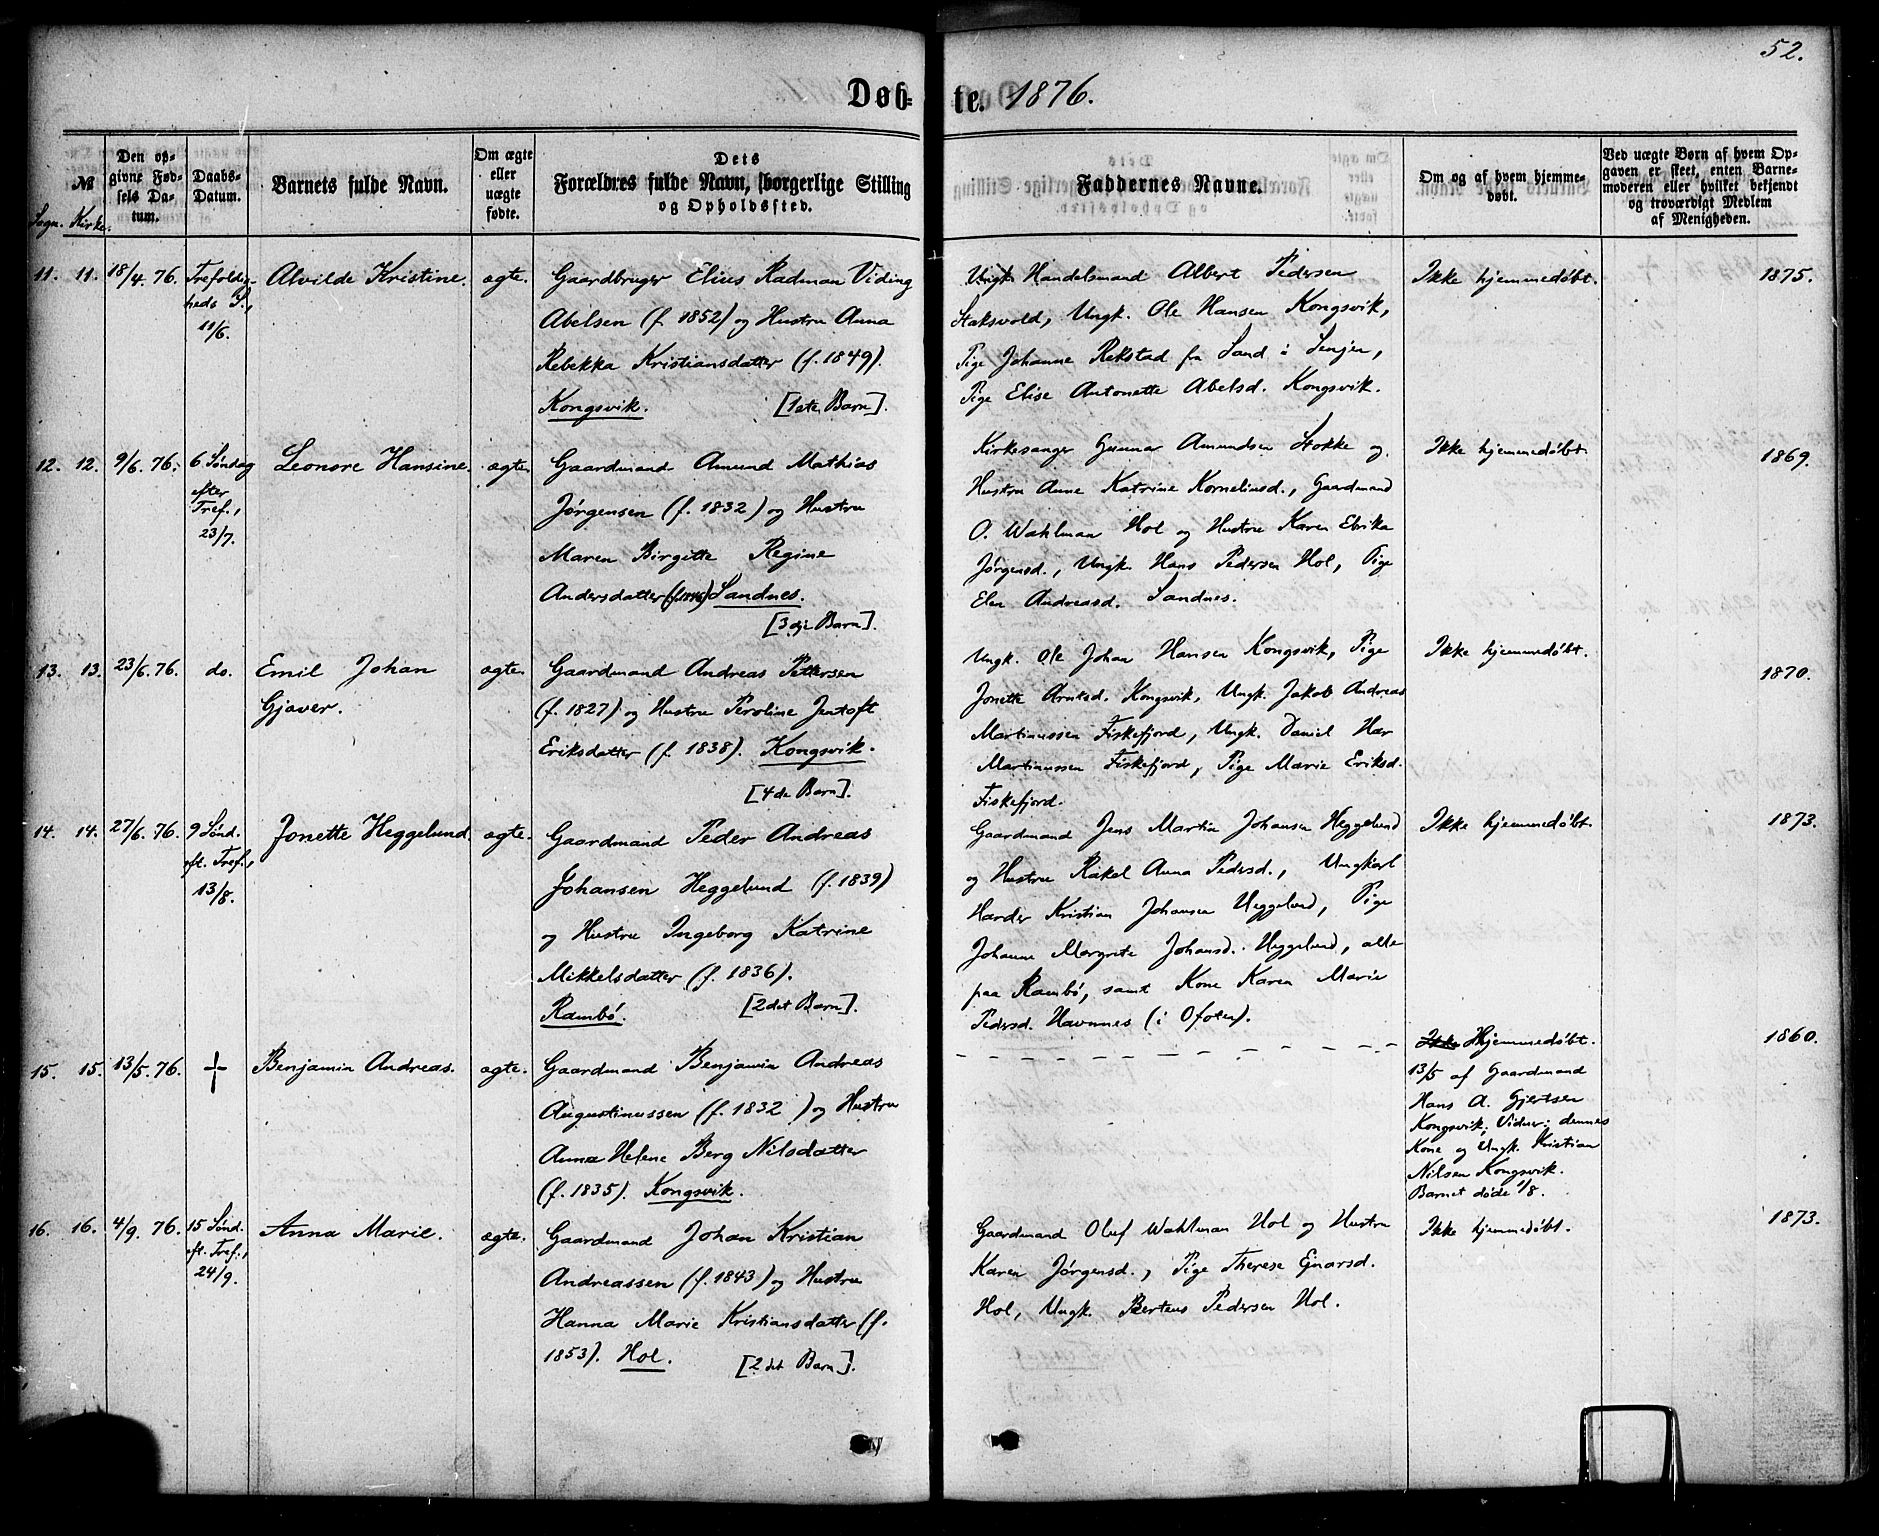 52.
Døb=te. 1876.
№
Sogn. Kirke.
Den op=
givne Fød=
sels Da=
tum.
Daabs=
Datum.
Barnets fulde Navn.
Om ægte
eller
uægte
fødte.
Dets
Forældres fulde Navn, borgerlige Stilling
og Opholdssted.
Faddernes Navne.
Om og af hvem hjemme=
døbt.
Ved uægte Børn af hvem Op=
gaven er skeet, enten Barne=
moderen eller hvilket bekjendt
og troværdigt Medlem
af Menigheden.
11. 11. 18/4. 76. Trefoldig-
heds S.,
11/6.
Alvilde Kristine. ægte.
Gaardbruger Elius Radman Viding
Abelsen (f. 1852) og Hustru Anna
Rebekka Kristiansdatter (f. 1849).
Kongsvik. [1ste Barn].
Handelsmand Albert Pedersen
Staksvold, Ungk. Ole Hansen Kongsvik,
Pige Johanne Rekstad fra Sand i Senjen,
Pige Elise Antonette Abelsd. Kongsvik.
Ikke hjemmedøbt. 1875.
12. 12. 9/6. 76. 6 Søndag
efter
Tref.,
23/7.
Leonore Hansine. ægte.
Gaardmand Amund Mathias
Jørgensen (f. 1832) og Hustru
Maren Birgitte Regine
Andersdatter Sandnes.
[3die Barn].
Kirkesanger Gunnar Amundsen Stokke og
Hustru Anne Katrine Korneliusd., Gaardmand
O. Wahlman Hol og Hustru Karen Elrika
Jørgensd., Ungk. Hans Pedersen Hol, Pige
Elen Andreasd. Sandnes.
Ikke hjemmedøbt. 1869.
13. 13. 23/6. 76. do. Emil Johan
Gjæver.
ægte.
Gaardmand Andreas Pettersen
(f. 1827) og Hustru Peroline Jentoft
Eriksdatter (f. 1838). Kongsvik.
[4de Barn].
Ungk. Ole Johan Hansen Kongsvik, Pige
Jonette Arntsd. Kongsvik, Ungk. Jakob Andreas
Martinussen Fiskefjord, Ungk. Daniel Hær
Martinussen Fiskefjord, Pige Marie Eriksd.
Fiskefjord.
Ikke hjemmedøbt. 1870.
14. 14. 27/6. 76. 9 Sønd.
eft. Tref.,
13/8.
Jonette Heggelund. ægte.
Gaardmand Peder Andreas
Johansen Heggelund (f. 1839)
og Hustru Ingeborg Katrine
Mikkelsdatter (f. 1836).
Rambø. [2det Barn].
Gaardmand Jens Martin Johansen Heggelund
og Hustru Rakel Anna Pedersd., Ungkarl
Harder Kristian Johansen Heggelund, Pige
Johanne Margrete Johansd. Heggelund, alle
paa Rambø, samt Kone Karen Marie
Pedersd. Havnnes (i Ofoten).
Ikke hjemmedøbt. 1873.
15. 15. 13/5. 76. + Benjamin Andreas. ægte.
Gaardmand Benjamin Andreas
Augustinussen (f. 1832) og Hustru
Anna Helene Berg Nilsdatter
(f. 1835). Kongsvik.
Ikke Hjemmedøbt.
13/5 af Gaardmand
Hans A. Gjertsen
Kongsvik; Vidner: dennes
Kone og Ungk. Kristian
Nilsen Kongsvik.
Barnet døde 1/8.
1860.
16. 16. 4/9. 76. 15 Sønd.
eft. Tref.,
24/9.
Anna Marie. ægte.
Gaardmand Johan Kristian
Andreassen (f. 1843) og Hustru
Hanna Marie Kristiansdatter (f.
1853). Hol. [2det Barn].
Gaardmand Oluf Wahlman Hol og Hustru
Karen Jørgensd., Pige Therese Ejnarsd.
Hol, Ungk. Berteus Pedersen Hol.
Ikke hjemmedøbt. 1873.